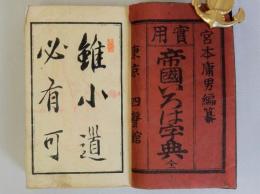 宮本庸男編纂
實用
帝國いろは字典
全
東京 四聲館
雖小道
必有可